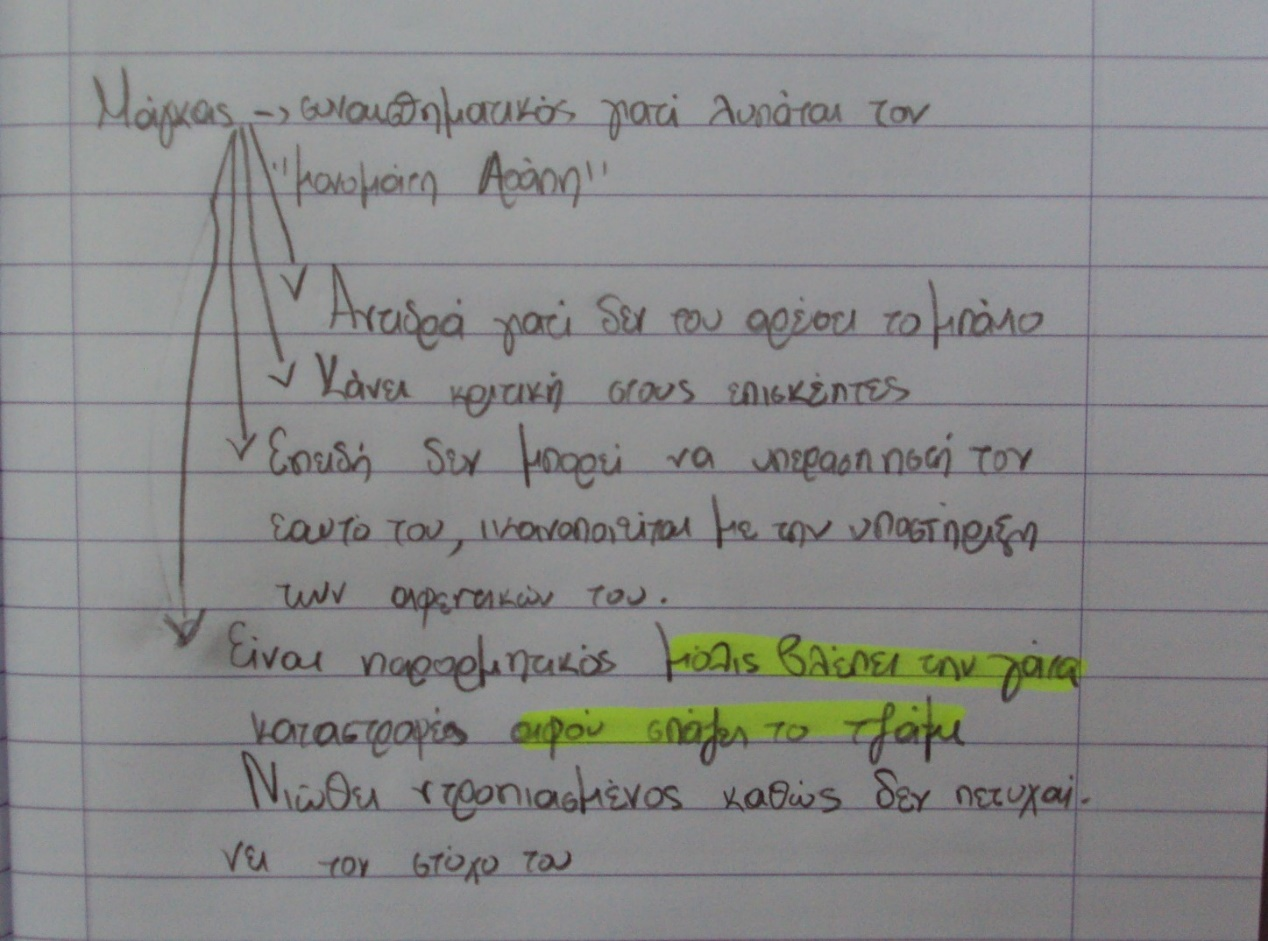 Μάγκας -> συναισθηματικός γιατί λυπάται τον
"μονομάτη Αράπη"
Αντιδρά γιατί δεν του αρέσει το μπάνιο
Κάνει κριτική στους επισκέπτες
Επειδή δεν μπορεί να υπερασπησεί τον
εαυτό του, ικανοποιείται με την υποστήριξη
των αφεντικών του.
Είναι παρορμητικός μόλις βλέπει την γάτα
καταστροφές αφού σπάζει το τζάμι
Νιώθει ντροπιασμένος καθώς δεν πετυχαί-
νει τον στόχο του